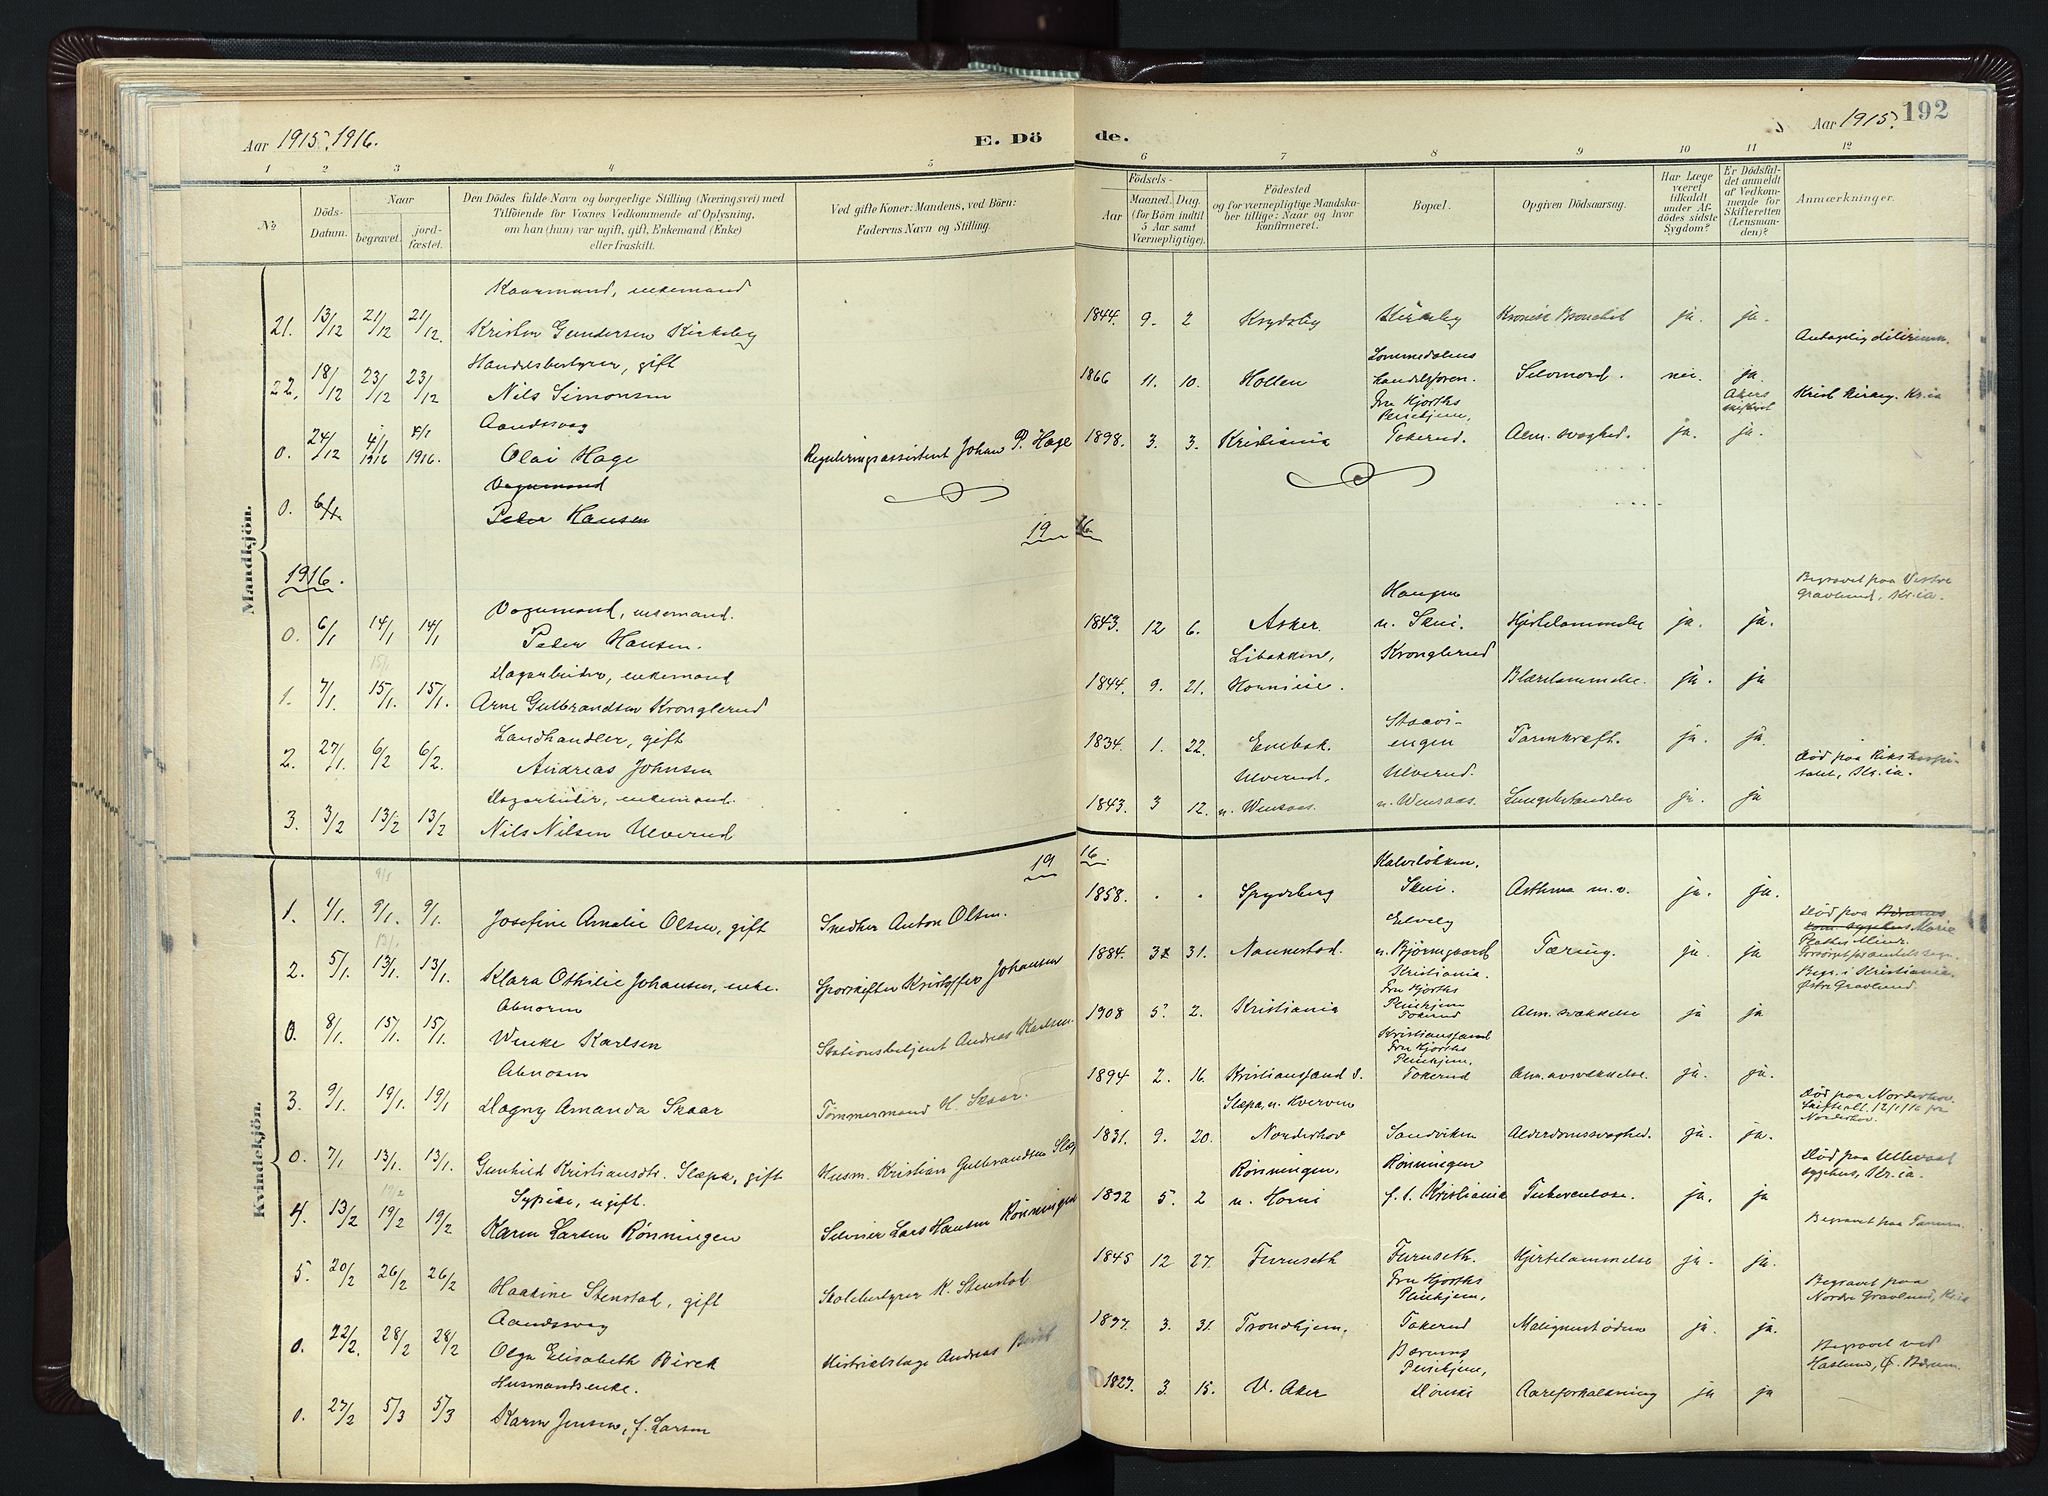 Aar 1915, 1916.
E. Dö de.
Aar 1915.
192
1 2 3 4 5 6 7 8 9 10 11 12
№
Döds-Datum.
Naar
begravet.
jord-fæstet.
Den Dödes fulde Navn og borgerlige Stilling (Næringsvei) med
Tilföiende for Voxnes Vedkommende af Oplysning,
om han (hun) var ugift, gift, Enkemand (Enke)
eller fraskilt.
Ved gifte Koner: Mandens, ved Börn:
Faderens Navn og Stilling.
Födsels-
Aar
Maaned. Dag.
(for Börn indtil
5 Aar samt
Værnepligtige).
Födested
og for værnepligtige Mandska-
ber tillige: Naar og hvor
konfirmeret.
Bopæl.
Opgiven Dödsaarsag.
Har Læge
været
tilkaldt
under Af-
dödes sidste
Sygdom?
Er Dödsfal-
det anmeldt
af Vedkom-
mende for
Skifteretten
(Lensman-
den)?
Anmærkninger.
Mandkjön.
Kaarmand, enkemand
21. 13/12 21/12 21/12. Kristen Gundersen Kirkeby 1844. 9. 2 Krydsby Kirkeby Kronisk Bronchit ja. ja.
Antagelig delirium.
Handelsbestyrer, gift
Lommedalens
22. 18/12 23/12 23/12 Nils Simonsen 1866 11. 10. Hollen handelsforen. Selvmord. nei. ja.
Akers skifteret
Krist. Kirkeg. Kr.ia
Aandssvag
Fru Hjorths
Pleiehjem,
0. 24/12 4/1 1916 4/1 1916. Olai Hage Reguleringsassistent Johan P. Hage 1898. 3. 3. Kristiania Tokerud. Alm. svaghed. ja. ja.
Vognmand
0. 6/1. Peter Hansen
19 16.
1916.
Vognmand, enkemand.
Haugen
Begravet paa Vestre
Gravlund, Kr.ia.
0. 6/1 14/1 14/1 Peter Hansen. 1843. 12 6. Asker. u. Skui. Hjertelammelse ja. ja.
15/1
Dagarbeider, enkemand
Libakkene, Kronglerud
1. 7/1. 15/1. 15/1. Arne Gulbrandsen Kronglerud 1844. 9. 21. Hornsie. Blærelammelse. ja. ja
Landhandler, gift
Staavi-
2. 27/1. 6/2 6/2. Andreas Johnsen 1834. 1. 22. Enebak. engen Tarmkræft. ja. ja.
Død paa Rikshospi-
talet, Kr.ia.
Dagarbeider, enkemand.
Ulverud, Ulverud.
3. 3/2 13/2 13/2 Nils Nilsen Ulverud 1843. 3 12. u. Wensaas. u. Wensaas. Lungebetændelse ja. ja
Kvindekjön.
19 16
Kalveløkken.
9/1
1. 1/1. 9/1. 9/1. Josefine Amalie Olsen, gift Snedker Anton Olsen. 1858. Spydeberg Skui. Asthma m.v. ja. ja.
13/1
Elvely
Død paa Bærums
kom. sygehus Marie
Plathes Minde.
2. 5/1. 13/1. 13/1. Klara Othilie Johansen, enke. Sporskifter Kristoffer Johansen 1884. 3 31. Nannestad. u. Bjørnegaard Tæring. ja. ja
Kristiania.
Begr. i Kristiania.
Østre Gravlund.
Abnorm
Fru Hjorths
Pleiehjem
0. 8/1. 15/1. 15/1. Wenke Karlsen Stationsbetjent Andreas Karlsen. 1908 5? 2. Kristiania Tokerud Alm. svækkelse ja ja
Abnorm
Kristianssand
Fru Hjorths
Pleiehjem.
3. 9/1. 19/1. 19/1. Dagny Amanda Skaar Tømmermand H. Skaar. 1894 2. 16. Kristianssand S. Tokerud Alm. avsvækkelse. ja. ja.
Slæpa, u. Kverven
Død paa Norderhov.
Norderhov.
0. 7/1 13/1. 13/1. Gunhild Kristiansdtr. Slæpa, gift Husm. Kristian Gulbrandsen Slæp 1831. 9. 20. Norderhov Sandviken Alderdomssvaghed. ja. ja.
19/2
Sypike, ugift.
Rønningen, Rønningen
Død paa Ullevaal
sygehus, Kr.ia.
4. 13/2 19/2 19/2 Karen Larsen Rønningen Selveier Lars Hansen Rønningen 1892 5. 2 u. Horni f. t. Kristiania Tuberculose. ja. ja
Begravet paa Tanum.
5. 20/2 26/2 26/2 Haakine Stenstad, gift Skolebestyrer K. Stenstad 1845 12 27. Furuseth Furuseth. Hjertelammelse ja. ja.
Aandssvag
Fru Hjorths
Pleiehjem,
Begravet paa
Nordre Gravlund, Kr.ia
0. 22/2. 28/2 28/2 Olga Elisabeth Birch Distriktslæge Andreas Birch 1897. 3. 31. Trondhjem. Tokerud Malignt ødem ja. ja.
Husmandsenke.
Bærums
Pleiehjem,
Begravet ved
Haslund, Ø. Bærum.
0. 27/2 5/3 5/3 Karen Jensen, f. Larsen 1827. 3. 15. V. Aker Dønski Aareforkalkning ja ja